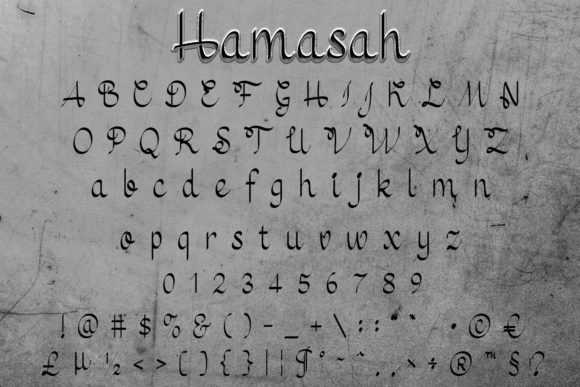 Hamasah
A B C D E F G H I J K L M N
O P Q R S T U V W X Y Z
a b c d e f g h i j k l m n
o p q r s t u v w x y z
0 1 2 3 4 5 6 7 8 9
! @ # $ % & ( ) - _ + \ : : “ ” • © €
£ µ ½ < > [ ] { } | ¦ ¶ ° ~ ^ . , × ÷ ® ™ § ?